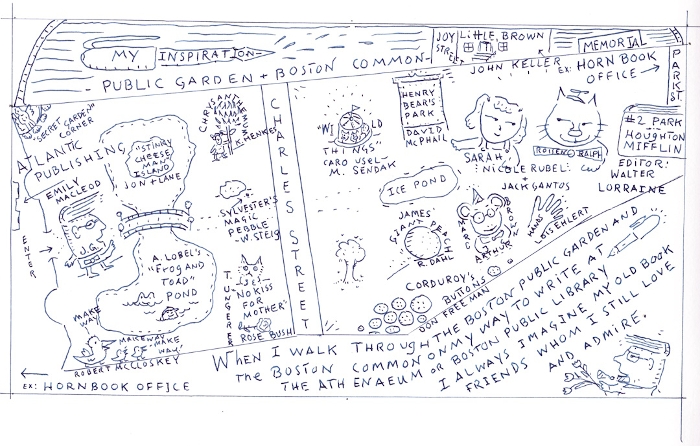 MY INSPIRATION -
PUBLIC GARDEN + BOSTON COMMON -
JOY STREET
LITTLE, BROWN
JOHN KELLER
MEMORIAL
EX: HORN BOOK
OFFICE →
PARK ST.
"SECRET GARDEN"
CORNER
ATLANTIC
PUBLISHING
EMILY
MACLEOD
ENTER
"STINKY
CHEESE
MAN
ISLAND
JON + LANE
A. LOBEL'S
"FROG AND
TOAD"
POND
MAKE
WAY
MAKE WAY
MAKE
WAY
ROBERT McCLOSKEY
←
EX: HORN BOOK OFFICE
CHRYSANTHEMUM
K. HENKES
SYLVESTER'S
MAGIC
PEBBLE
- W. STEIG
T. UNGERER
"NO KISS
FOR
MOTHER"
ROSE BUSH
CHARLES STREET
"WILD
THINGS"
CAROUSEL -
M. SENDAK
HENRY
BEAR'S
PARK
DAVID
McPHAIL
ICE POND
JAMES'
GIANT PEACH
R. DAHL
SARAH
NICOLE RUBEL:
ROTTEN RALPH
JACK GANTOS
MARC BROWN
ARTHUR
HANDS
LOIS EHLERT
CORDUROY'S
BUTTONS
DON FREEMAN
#2 PARK
HOUGHTON
MIFFLIN
EDITOR:
WALTER
LORRAINE
WHEN I WALK THROUGH THE BOSTON PUBLIC GARDEN AND
THE BOSTON COMMON ON MY WAY TO WRITE AT
THE ATHENAEUM OR BOSTON PUBLIC LIBRARY
I ALWAYS IMAGINE MY OLD BOOK
FRIENDS WHOM I STILL LOVE
AND ADMIRE.